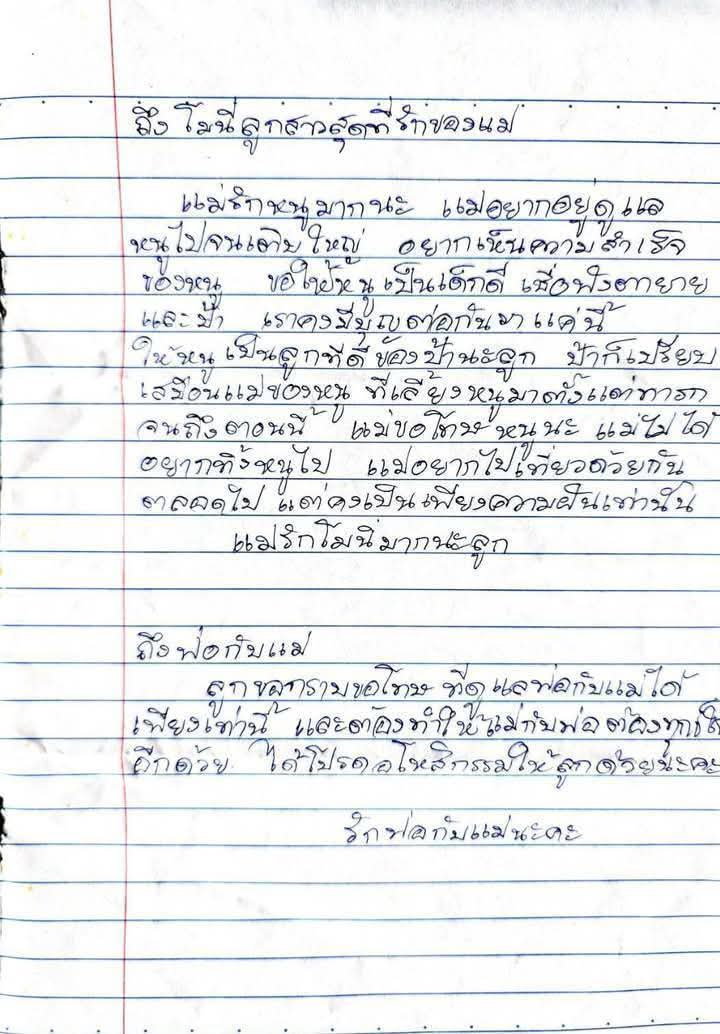 ถึง โมนี่ลูกสาวสุดที่รักของแม่
แม่รักหนูมากนะ แม่อยากอยู่ดูแล
หนูไปจนเติบใหญ่ อยากเห็นความสำเร็จ
ของหนู ขอให้หนูเป็นเด็กดี เชื่อฟังตายาย
และป้า เราคงมีบุญต่อกันมาแค่นี้
ให้หนูเป็นลูกที่ดีของป้านะลูก ป้าก็เปรียบ
เสมือนแม่ของหนู ที่เลี้ยงหนูมาตั้งแต่ทารก
จนถึงตอนนี้ แม่ขอโทษหนูนะ แม่ไม่ได้
อยากทิ้งหนูไป แม่อยากไปเที่ยวด้วยกัน
ตลอดไป แต่คงเป็นเพียงความฝันเท่านั้น
แม่รักโมนี่มากนะลูก
ถึงพ่อกับแม่
ลูกขอกราบขอโทษ ที่ดูแลพ่อกับแม่ได้
เพียงเท่านี้ และต้องทำให้แม่กับพ่อต้องทุกข์ใ
อีกด้วย ได้โปรดอโหสิกรรมให้ลูกด้วยนะคะ
รักพ่อกับแม่นะคะ